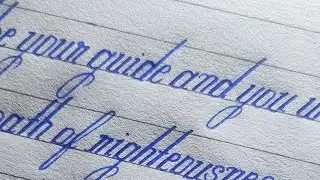 e your guide and you w
path of righteousness